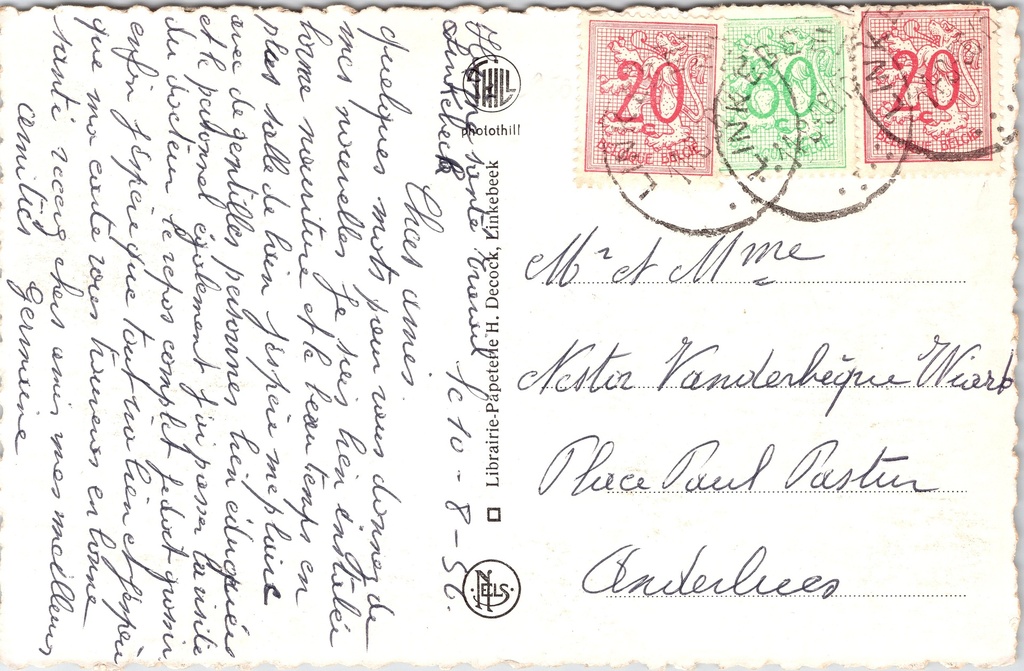 Home Bonté Linkebeek le 10-8-56.
Linkebeek
Chers amis
quelques mots pour vous donner de
mes nouvelles je suis bien installée
bonne nourriture et le beau temps en
plus salle de bain j'espère me plaire
avec de gentilles personnes bien éduquées
et le personnel également j'ai passer la visite
du docteur le repos complet je doit grossir
enfin j'espère que tout ira bien et j'espère
que ma carte vous trouveras en bonne
santé recevez chers amis mes meilleurs
amitiés
Germaine
photothill
Librairie-Papeterie H. Decock, Linkebeek
NELS
20
BELGIQUE BELGIË
80
20
BELGIQUE BELGIË
LINKEBEEK
Mr et Mme
Nestor Vanderbèque Wiard
Place Paul Pastur
Anderlues